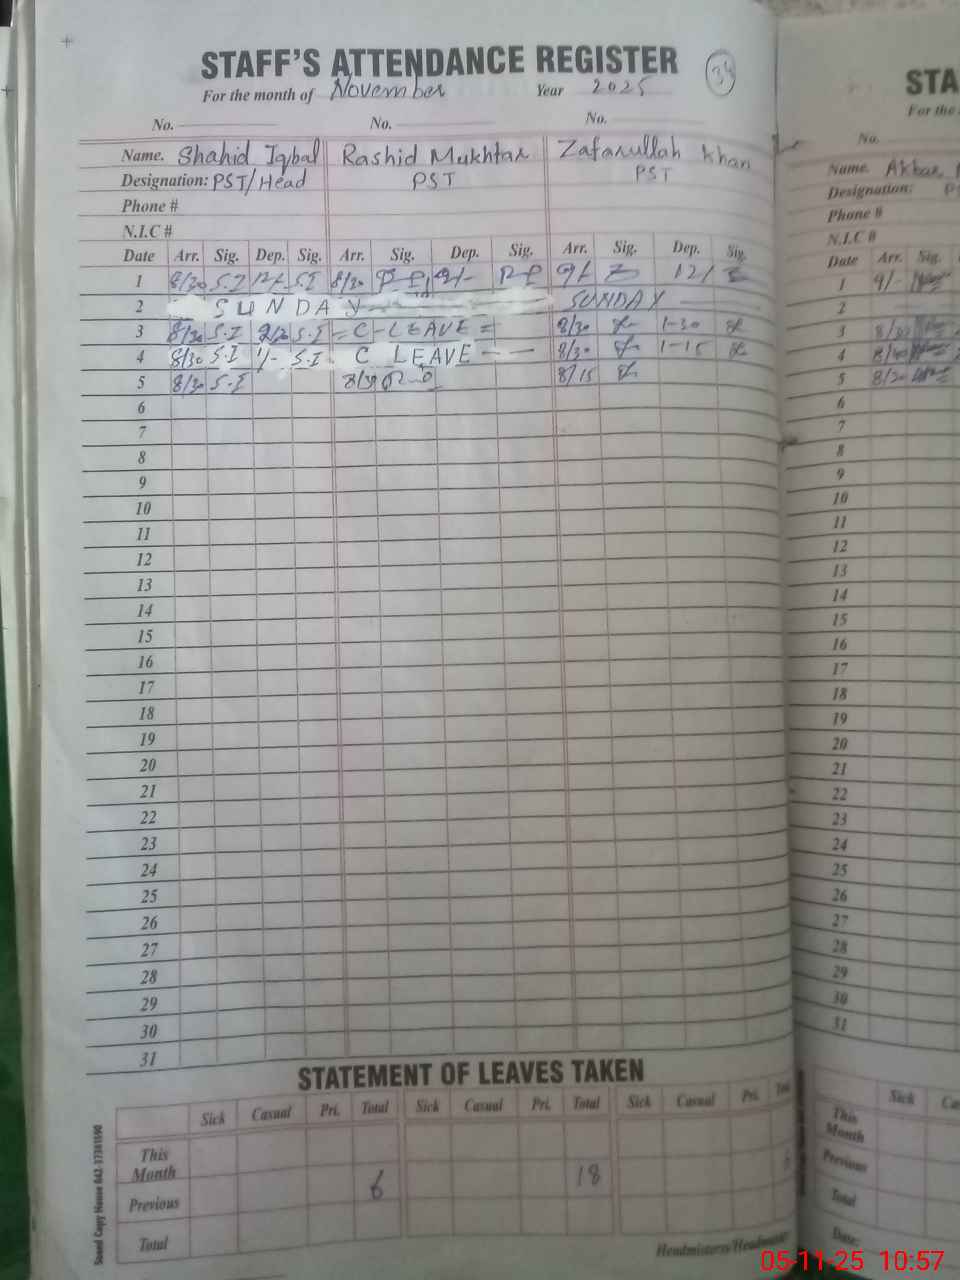 STAFF'S ATTENDANCE REGISTER 34
For the month of November Year 2025
No. No. No.
Name. Shahid Iqbal Rashid Mukhtar Zafarullah Khan
Designation: PST/Head PST PST
Phone #
N.I.C #
Date Arr. Sig. Dep. Sig. Arr. Sig. Dep. Sig. Arr. Sig. Dep. Sig.
1 8/30 S.I 12/- S.I 8/30 9/- 12/
2 SUNDAY SUNDAY
3 8/30 S.I S.I = C - LEAVE = 8/30 1-30
4 8/30 S.I 1/- S.I C LEAVE - 8/30 1-15
5 8/30 S.I 8/30 8/15
6
7
8
9
10
11
12
13
14
15
16
17
18
19
20
21
22
23
24
25
26
27
28
29
30
31
STATEMENT OF LEAVES TAKEN
Sick Casual Pri. Total Sick Casual Pri. Total Sick Casual Pri.
This Month
Previous 6 18
Total
Saeed Copy House 042-37361590
STA
For the
No.
Name. Akbar
Designation:
Phone #
N.I.C #
Date Arr. Sig.
1 9/-
2
3 8/30
4 8/40
5 8/20
6
7
8
9
10
11
12
13
14
15
16
17
18
19
20
21
22
23
24
25
26
27
28
29
30
31
Sick Ca
This Month
Previous
Total
Date:
05-11-25 10:57